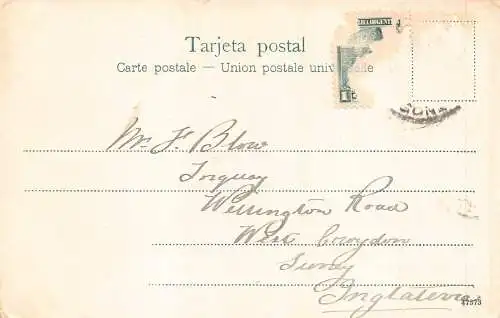 Tarjeta postal
Carte postale — Union postale universelle
1c
Mr. F. Blow
Torquay
Wellington Road
West Croydon
Surrey
Inglaterra
47573